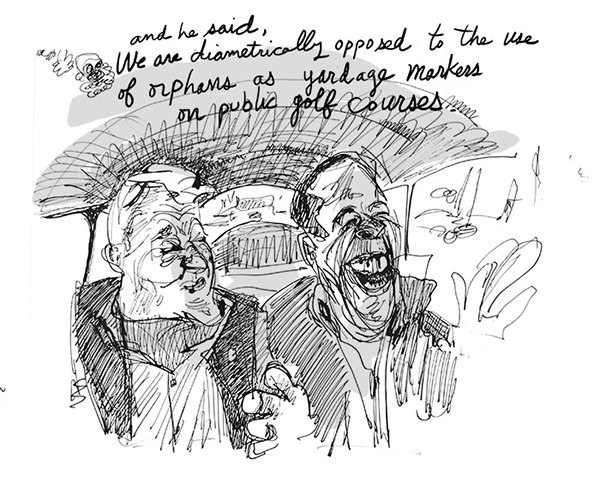 and he said,
We are diametrically opposed to the use
of orphans as yardage markers
on public golf courses.